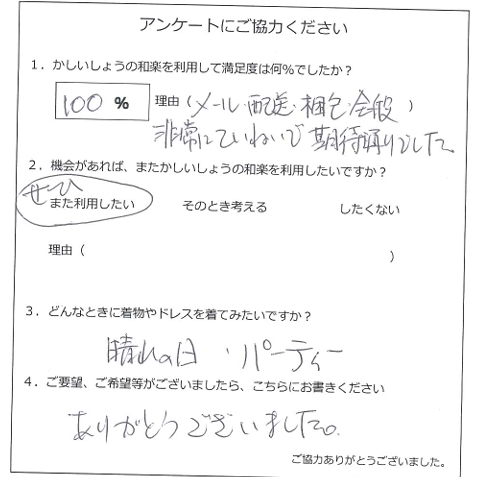 アンケートにご協力ください
1．かしいしょうの和楽を利用して満足度は何%でしたか？
100 % 理由（メール・配送・梱包・全般）
非常にていねいで期待通りでした。
2．機会があれば、またかしいしょうの和楽を利用したいですか？
ぜひ
また利用したい そのとき考える したくない
理由（ ）
3．どんなときに着物やドレスを着てみたいですか？
晴れの日・パーティー
4．ご要望、ご希望等がございましたら、こちらにお書きください
ありがとうございました。
ご協力ありがとうございました。